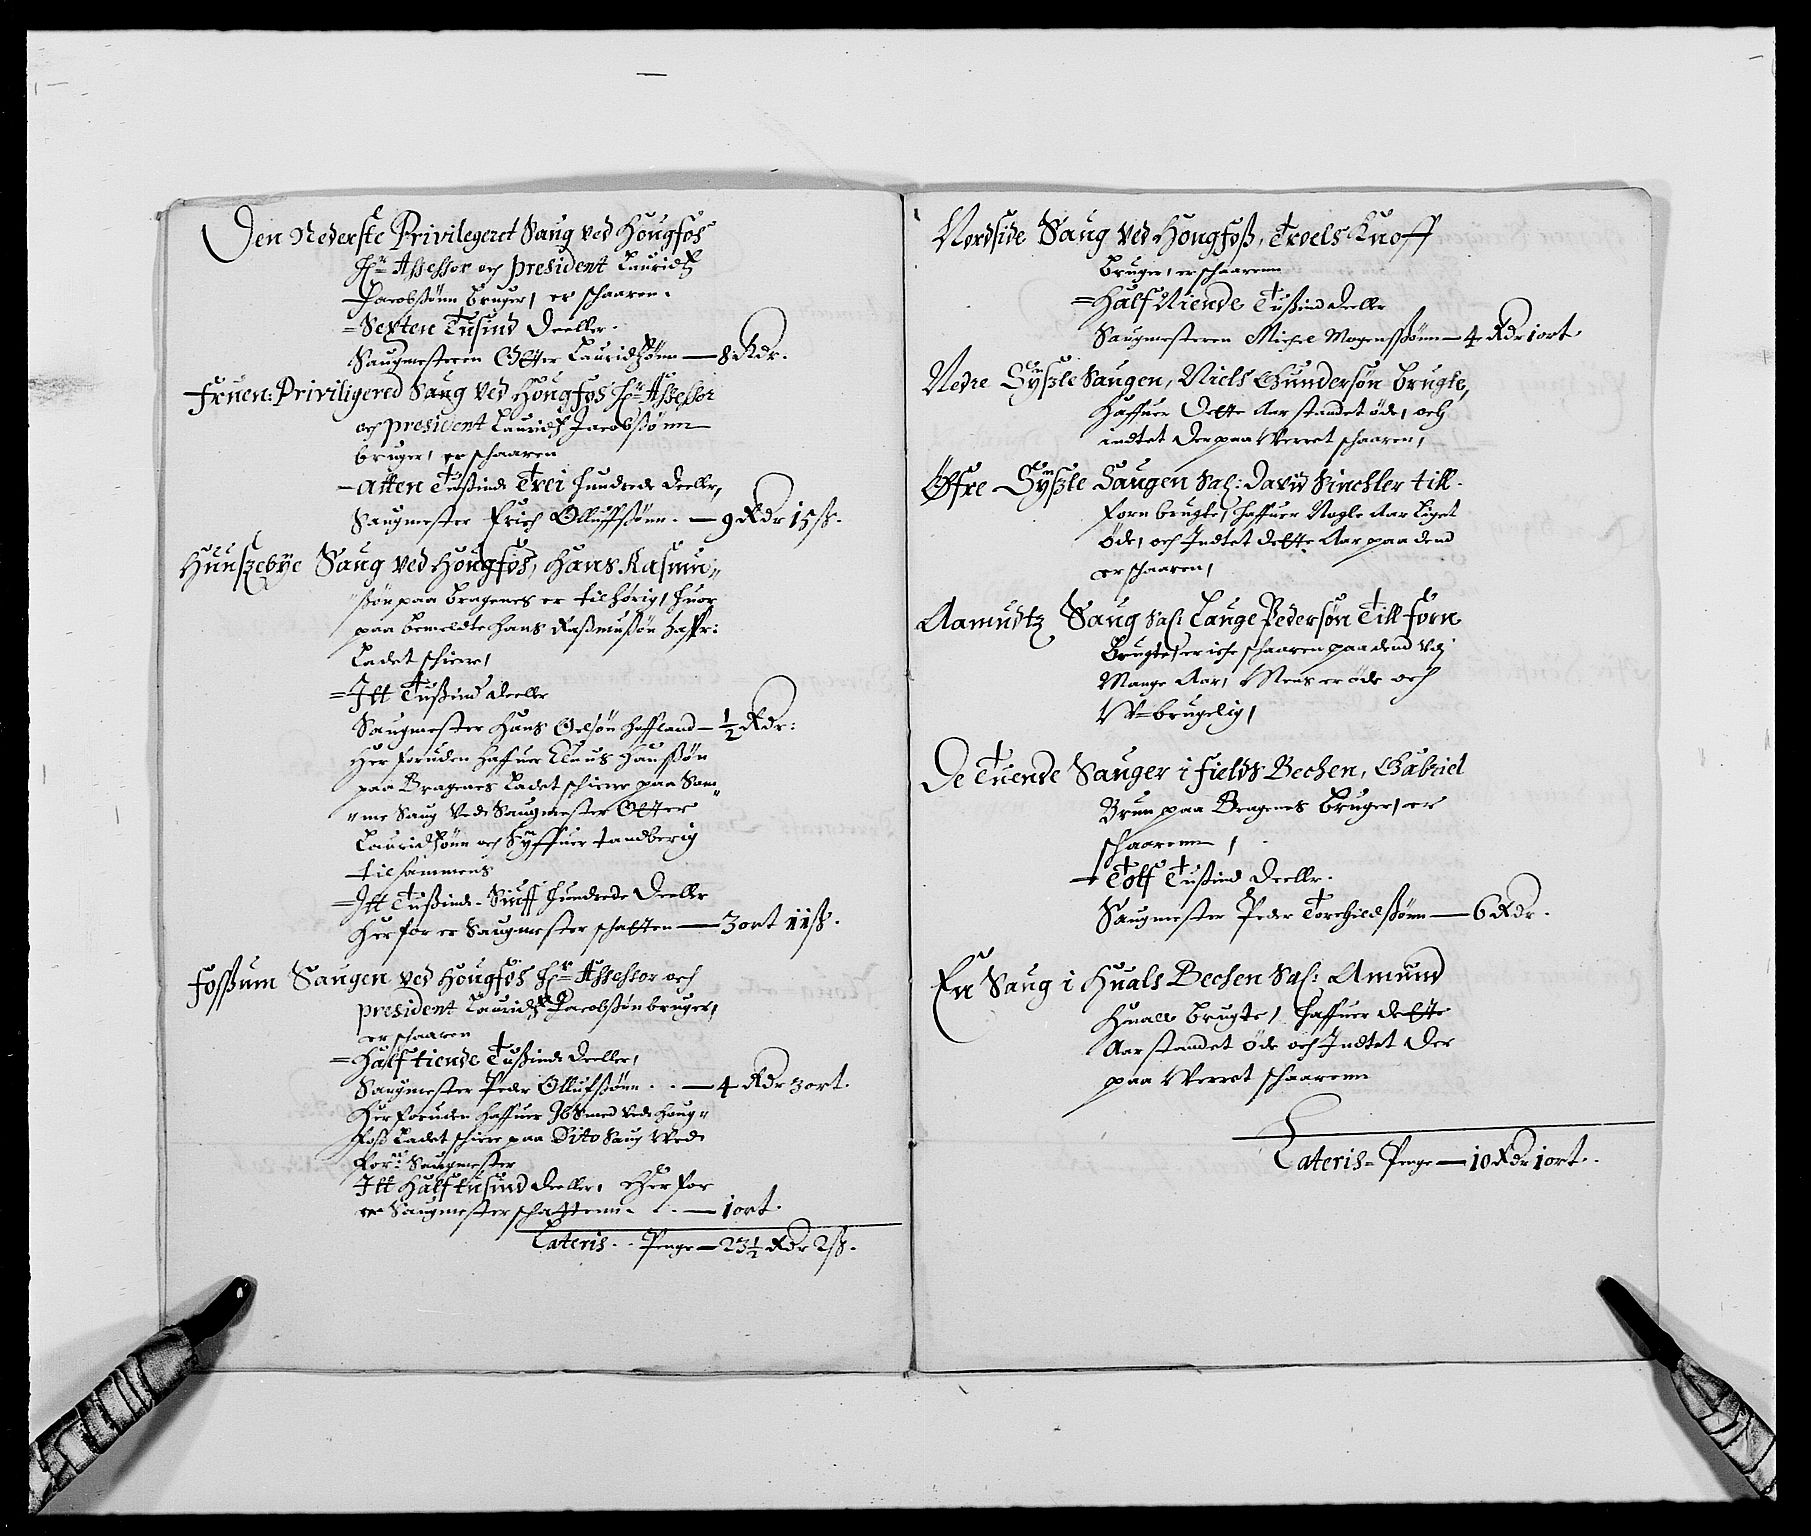 Den Nederste Privilegeret Saug ved Hougfos
Hr Assessor och president Lauridtz
Jacobssønn bruger, er schaaren.
= Sexten Tusind Deeller.
Saugmesteren Otter Lauridtzønn — 8 Rdr.
Fruen: Priviligered Saug ved Hougfos Hr Assessor
och president Lauridtz Jacobssønn
bruger, er schaaren
— Atten Tussinde Trei hundrede Deeller,
Saugmester Erich Olluffssønn. — 9 Rdr 15 ss.
Hunszebye Saug ved Hougfos, Hans Rasmu"
"søn paa Bragenes er tilhørig, huor
paa bemeldte Hans Rassmussøn haffr:
Ladet schiere,
= Itt Tussind Deeller
Saugmester Hans Oelsøn Hoffland — ½ Rdr:
Her foruden haffuer Claus Hanssøn
paa Bragenes Ladet schiere paa Sam"
"me Saug Ved Saugmester Otter
Lauridtzønn och Syffuer tandberig
tilsammens
= Itt Tussinde Siuff hundrede Deeller
Her for er Saugmester schatten — 3 ort 11 ss.
Fosssum Saugen ved Hougfos Hr Assessor och
president Lauridtz Jacobssøn bruger,
er schaaren
= Half tiende Tussinde Deeller,
Saugmester Peder Ollufssønn . . — 4 Rdr 3 ort.
Her foruden haffuer Ib Smed Ved Houg"
foss Ladet schiere paa Dito Saug Ved
for: Saugmester
Itt Half tusind Deeller, Her for
er Saugmester schatten . . — 1 ort.
Lateris . . Penge — 23½ Rdr 2 ss.
Nordside Saug ved Hougfoss, Troels Knoff
Bruger, er schaarenn
= Half Niende Tussind Deeller
Saugmesteren Michel Mogenssønn — 4 Rdr 1 ort
Nedre Syszle Saugen, Niels Gundersøn brugte,
Haffuer Dette Aar standet øde, och
indtet der paa Verret schaaren,
Øffre Syszle Saugen Sal: David Sinchler till
forn brugte, haffuer Nogle Aar Liget
Øde, och Indtet dette Aar paa dend
er schaaren,
Aamudtz Saug Sal: Lauge Pedersøn Till forn
Brugte, er iche schaaren paa dend Udj
Mange Aar, Mens er øde och
U=brugelig,
De Tuende Sauger i Fields Bechen, Gabriel
Brun paa Bragenes Bruger, er
schaarenn,
— Tolf Tussind Deeller.
Saugmester Peder Torchildssønn — 6 Rdr.
En Saug i Huals Bechen Sal: Amund
Hualle Brugte, haffuer dette
Aar standet Øde och Indtet Der
paa Verret schaarenn
Lateris - Penge — 10 Rdr 1 ort.